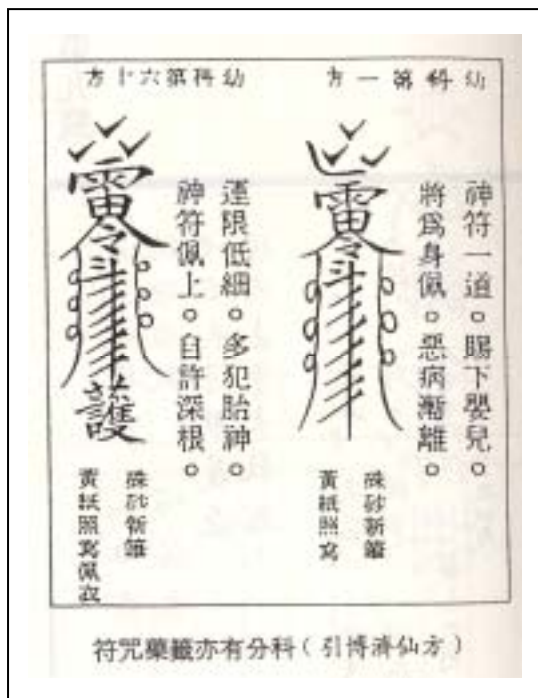 幼科第一方
神符一道。賜下嬰兒。
將為身佩。惡病漸離。
硃砂新筆
黃紙照寫
雷令
幼科第六十方
運限低細。多犯胎神。
神符佩上。自許深根。
硃砂新筆
黃紙照寫佩衣
雷令
護
符咒藥籤亦有分科(引博濟仙方)